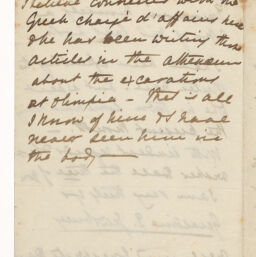 I believe connected with the
Greek chargé d'affaires here
& he has been writing those
articles in the Atheneum
about the excavations
at Olimpia - This is all
I know of him & I have
never seen him in
the body